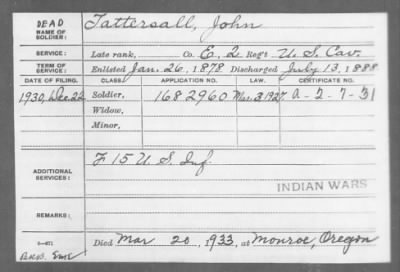 DEAD
NAME OF SOLDIER: Tattersall, John
SERVICE: Late rank, Co. E, 2 Reg't U. S. Cav.
TERM OF SERVICE: Enlisted Jan. 26, 1878 Discharged July 13, 1888
DATE OF FILING. CLASS. APPLICATION NO. LAW. CERTIFICATE NO.
1930, Dec. 22 Soldier, 1682960 Mar. 3 1927 A-2-7-31
Widow,
Minor,
ADDITIONAL SERVICES: F 15 U. S. Inf.
INDIAN WARS
REMARKS:
Died Mar 20, 1933, at Monroe, Oregon